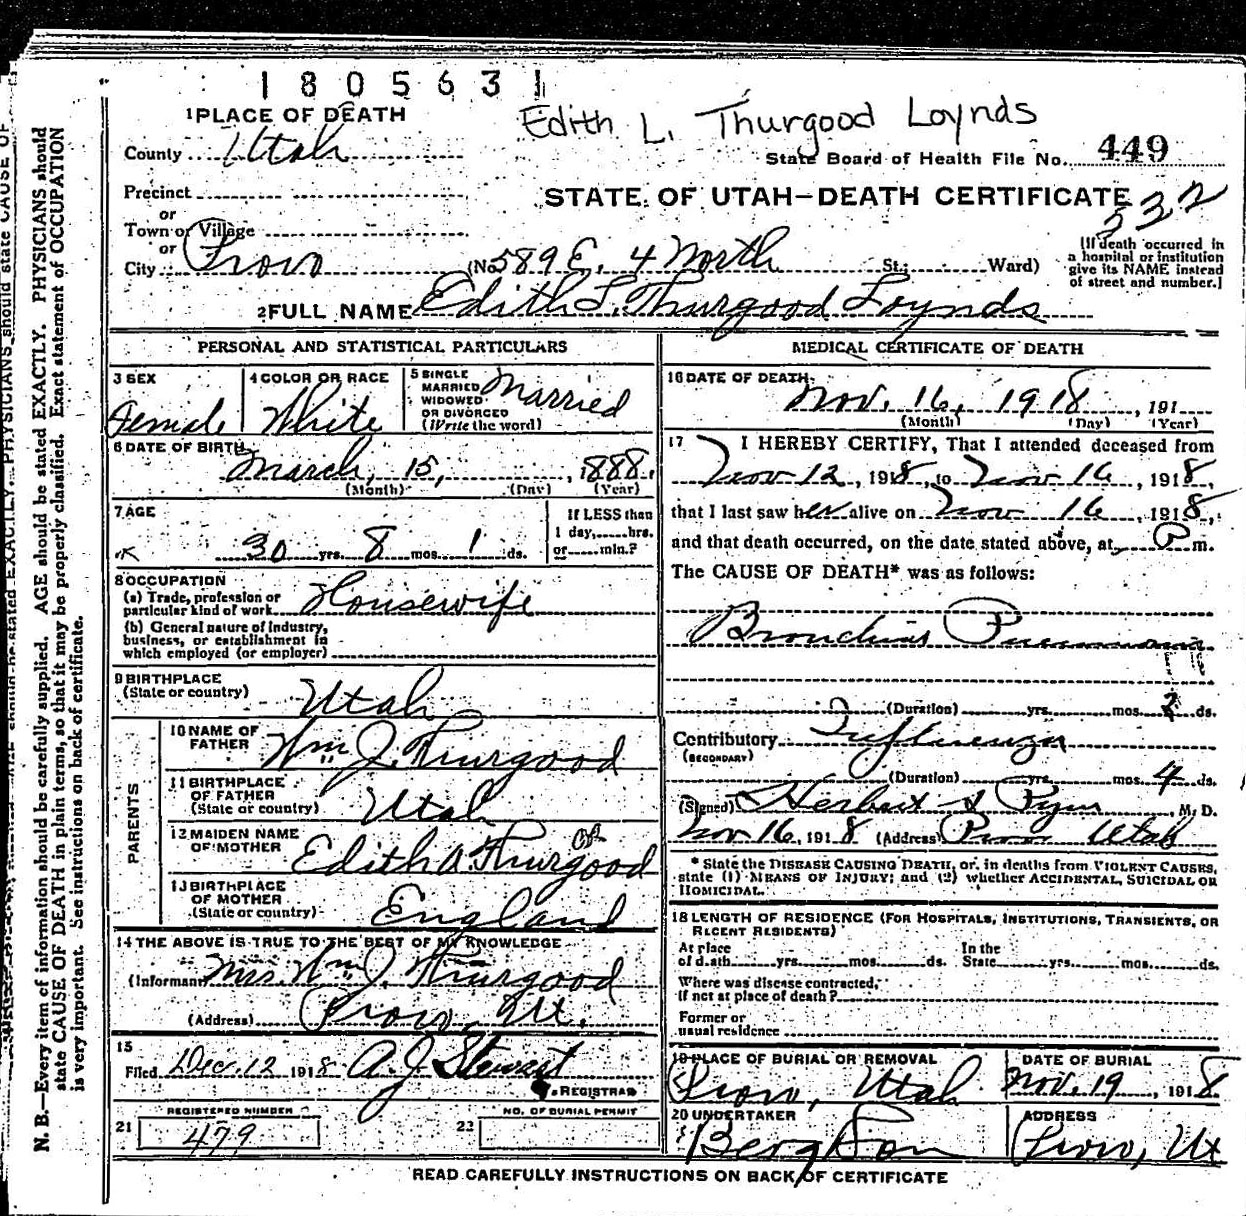 1805631
Edith L. Thurgood Loynds
1 PLACE OF DEATH
County Utah
State Board of Health File No. 449
Precinct
STATE OF UTAH—DEATH CERTIFICATE
532
or
Town or Village
or
City Provo (No. 589 E. 4 North St.; Ward)
[If death occurred in
a hospital or institution
give its NAME instead
of street and number.]
2 FULL NAME Edith L. Thurgood Loynds
PERSONAL AND STATISTICAL PARTICULARS
3 SEX
Female
4 COLOR OR RACE
White
5 SINGLE
MARRIED
WIDOWED
OR DIVORCED
(Write the word)
Married
6 DATE OF BIRTH
March, 15, , 1888.
(Month) (Day) (Year)
7 AGE
30 yrs. 8 mos. 1 ds.
If LESS than
1 day, hrs.
or min.?
8 OCCUPATION
(a) Trade, profession or
particular kind of work Housewife
(b) General nature of industry,
business, or establishment in
which employed (or employer)
9 BIRTHPLACE
(State or country) Utah
PARENTS
10 NAME OF
FATHER Wm J. Thurgood
11 BIRTHPLACE
OF FATHER
(State or country) Utah
12 MAIDEN NAME
OF MOTHER Edith A Thurgood
13 BIRTHPLACE
OF MOTHER
(State or country) England
14 THE ABOVE IS TRUE TO THE BEST OF MY KNOWLEDGE
(Informant Mrs Wm J. Thurgood
(Address) Provo, Ut.
15
Filed Dec. 12 1918 A. J. Stewart
REGISTRAR
REGISTERED NUMBER
21 479
NO. OF BURIAL PERMIT
22
MEDICAL CERTIFICATE OF DEATH
16 DATE OF DEATH
Nov. 16, 1918, 191
(Month) (Day) (Year)
17 I HEREBY CERTIFY, That I attended deceased from
Nov 12, 1918, to Nov 16, 1918,
that I last saw her alive on Nov 16, 1918,
and that death occurred, on the date stated above, at P m.
The CAUSE OF DEATH* was as follows:
Bronchial Pneumonia
(Duration) yrs. mos. 2 ds.
Contributory Influenza
(SECONDARY)
(Duration) yrs. mos. 4 ds.
(Signed) Herbert S Pyne, M. D.
Nov 16, 1918 (Address) Provo Utah
* State the DISEASE CAUSING DEATH, or, in deaths from VIOLENT CAUSES,
state (1) MEANS OF INJURY; and (2) whether ACCIDENTAL, SUICIDAL OR
HOMICIDAL.
18 LENGTH OF RESIDENCE (FOR HOSPITALS, INSTITUTIONS, TRANSIENTS, OR
RECENT RESIDENTS)
At place
of death yrs. mos. ds.
In the
State yrs. mos. ds.
Where was disease contracted,
if not at place of death?
Former or
usual residence
19 PLACE OF BURIAL OR REMOVAL
Provo, Utah.
DATE OF BURIAL
Nov. 19, 1918
20 UNDERTAKER
Berg & Son
ADDRESS
Provo, Ut
READ CAREFULLY INSTRUCTIONS ON BACK OF CERTIFICATE
N. B.—Every item of information should be carefully supplied. AGE should be stated EXACTLY. PHYSICIANS should
state CAUSE OF DEATH in plain terms, so that it may be properly classified. Exact statement of OCCUPATION
is very important. See instructions on back of certificate.